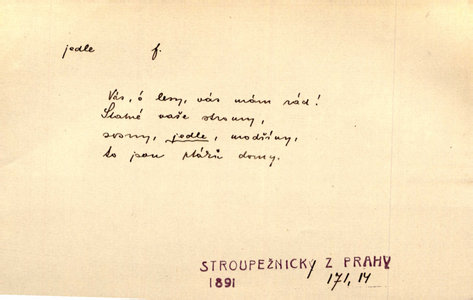 jedle f.
Vás, ó lesy, vás mám rád!
Statné vaše stromy,
sosny, jedle, modříny,
to jsou ptáků domy.
STROUPEŽNICKÝ Z PRAHY
1891 171, 14